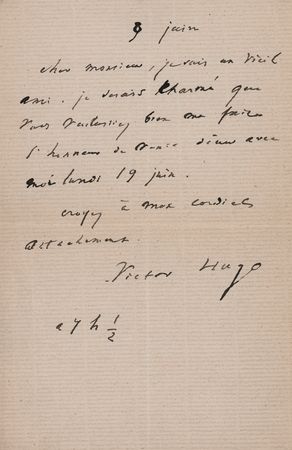 9 juin
cher monsieur, je suis un vieil
ami. je serais charmé que
vous voulussiez bien me faire
l'honneur de venir dîner avec
moi lundi 19 juin.
croyez à mon cordial
attachement.
Victor Hugo
à 7 h ½